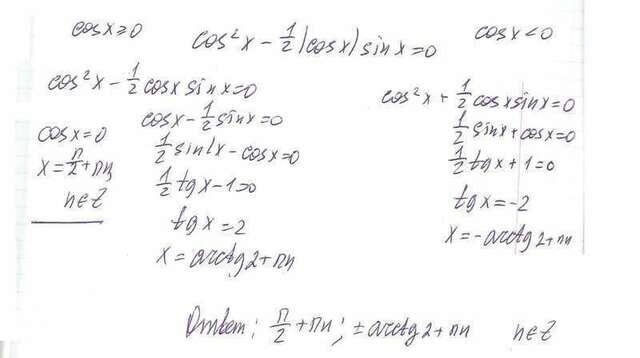 cosx≥0
cos²x - 1/2|cosx|sinx=0
cosx<0
cos²x - 1/2 cosx sinx=0
cosx=0
x = π/2 + πn
n∈Z
cosx - 1/2 sinx=0
1/2 sinx - cosx=0
1/2 tgx - 1=0
tgx=2
x = arctg2+πn
cos²x + 1/2 cosx sinx=0
1/2 sinx + cosx=0
1/2 tgx + 1=0
tgx = -2
x = -arctg2+πn
Ответ: π/2 + πn; ± arctg2 + πn n∈Z